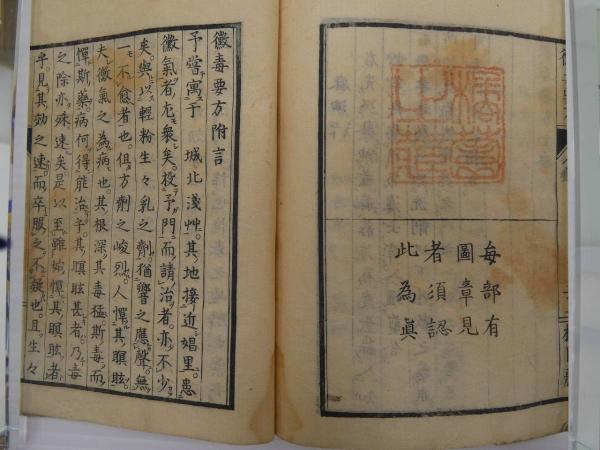 每部有
圖章見
者須認
此為真
黴毒要方附言
予嘗寓于城北淺艸其地接近娼里患
黴氣者尤衆矣投予門而請治者亦不少
矣與以輕粉生々乳之劑猶響之應聲無
一不愈者也但方劑之峻烈人憚其瞑眩
夫黴氣之為病也其根深其毒猛斯毒而
憚斯藥病何得能治乎其瞑眩甚者乃毒
之除亦殊速矣是以至難始憚其瞑眩者
半見其効之速而卒服之不疑也且生々